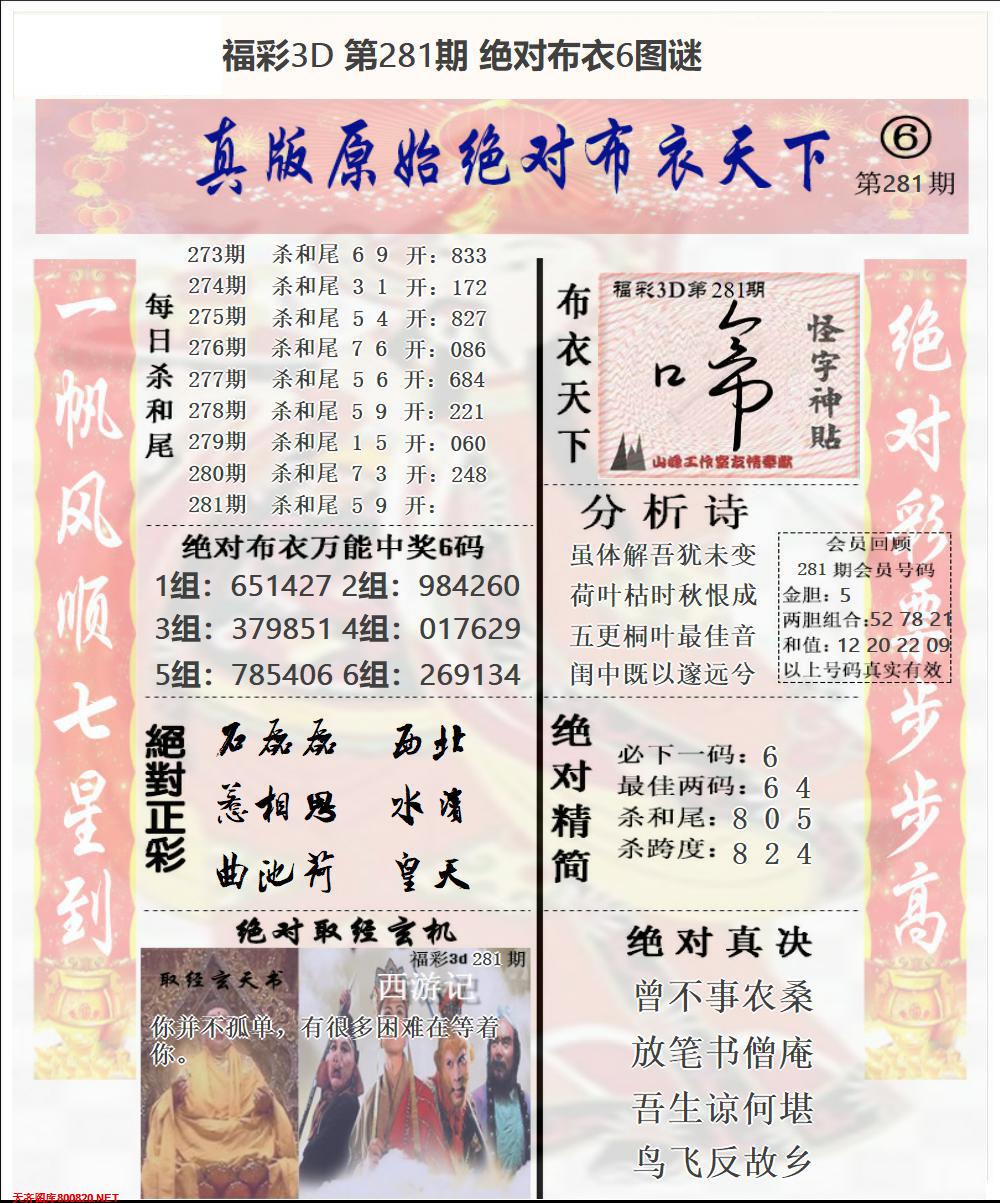 福彩3D 第281期 绝对布衣6图谜
真版原始绝对布衣天下
⑥
第281期
一帆风顺七星到
每日杀和尾
273期 杀和尾 6 9 开：833
274期 杀和尾 3 1 开：172
275期 杀和尾 5 4 开：827
276期 杀和尾 7 6 开：086
277期 杀和尾 5 6 开：684
278期 杀和尾 5 9 开：221
279期 杀和尾 1 5 开：060
280期 杀和尾 7 3 开：248
281期 杀和尾 5 9 开：
布衣天下
福彩3D第281期
口帝
怪字神貼
山峰工作室友情奉献
绝对彩票步步高
绝对布衣万能中奖6码
1组：651427 2组：984260
3组：379851 4组：017629
5组：785406 6组：269134
分析诗
虽体解吾犹未变
荷叶枯时秋恨成
五更桐叶最佳音
闺中既以邃远兮
会员回顾
281期会员号码
金胆：5
两胆组合:52 78 21
和值：12 20 22 09
以上号码真实有效
絕對正彩
石磊磊 西北
惹相思 水清
曲池荷 皇天
绝对精简
必下一码：6
最佳两码：6 4
杀和尾：8 0 5
杀跨度：8 2 4
绝对取经玄机
福彩3d 281期
取经玄天书
西游记
你并不孤单，有很多困难在等着
你。
绝对真决
曾不事农桑
放笔书僧庵
吾生谅何堪
鸟飞反故乡
天齐图库800820.NET